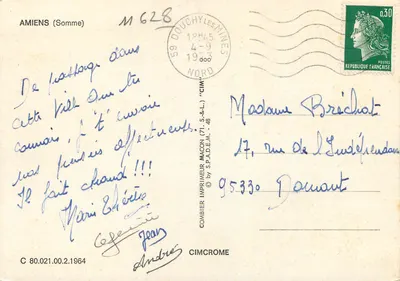 AMIENS (Somme)
11628
59 DOUCHY LES MINES
4-9
NORD
0,30
POSTES
REPUBLIQUE FRANÇAISE
De passage dans
cette ville que tu
connais, je t'envoie
mes pensées affectueuses.
Il fait chaud!!!
Marie Thérèse
Jean
André
COMBIER IMPRIMEUR MACON (71, S.-&-L.) "CIM"
© by S.P.A.D.E.M. - 48
Madame Bréchot
17, rue de l'Indépendance
95330 Domont
CIMCROME
C 80.021.00.2.1964